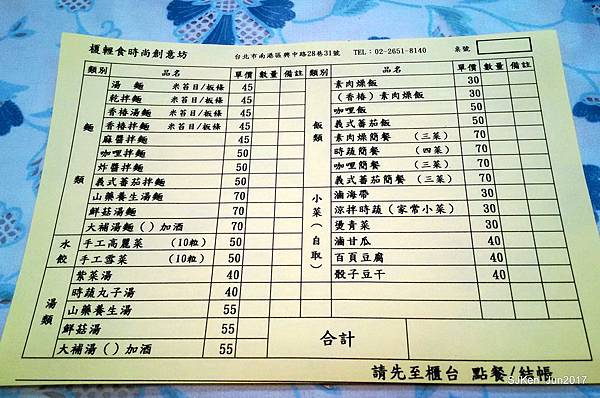 櫏輕食時尚創意坊 台北市南港區興中路28巷31號 TEL：02-2651-8140 桌號
類別 品名 單價 數量 備註 類別 品名 單價 數量 備註
麵類
湯 麵 米苔目/板條 45
乾拌麵 米苔目/板條 45
香樁湯麵 米苔目/板條 45
香樁拌麵 米苔目/板條 45
麻醬拌麵 45
咖哩拌麵 50
炸醬拌麵 50
義式蕃茄拌麵 50
山藥養生湯麵 70
鮮菇湯麵 70
大補湯麵( )加酒 70
水餃
手工高麗菜 (10粒) 50
手工雪菜 (10粒) 50
湯類
紫菜湯 40
時蔬丸子湯 40
山藥養生湯 55
鮮菇湯 55
大補湯( )加酒 55
飯類
素肉燥飯 30
(香樁)素肉燥飯 30
咖哩飯 50
義式蕃茄飯 50
素肉燥簡餐 (三菜) 70
時蔬簡餐 (四菜) 70
咖哩簡餐 (三菜) 70
義式蕃茄簡餐 (三菜) 70
小菜(自取)
滷海帶 30
涼拌時蔬(家常小菜) 30
燙青菜 30
滷甘瓜 40
百頁豆腐 40
骰子豆干 40
合計
請先至櫃台 點餐/結帳
SJKen Jun2017